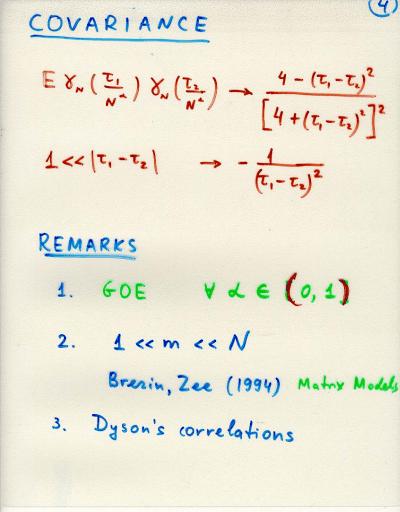 4
COVARIANCE
E γ_N(τ₁/N^α) γ_N(τ₂/N^α) → (4 - (τ₁-τ₂)²)/[4+(τ₁-τ₂)²]²
1 << |τ₁-τ₂| → - 1/(τ₁-τ₂)²
REMARKS
1. GOE ∀ α ∈ (0,1)
2. 1 << m << N
Brezin, Zee (1994) Matrix Models
3. Dyson's correlations